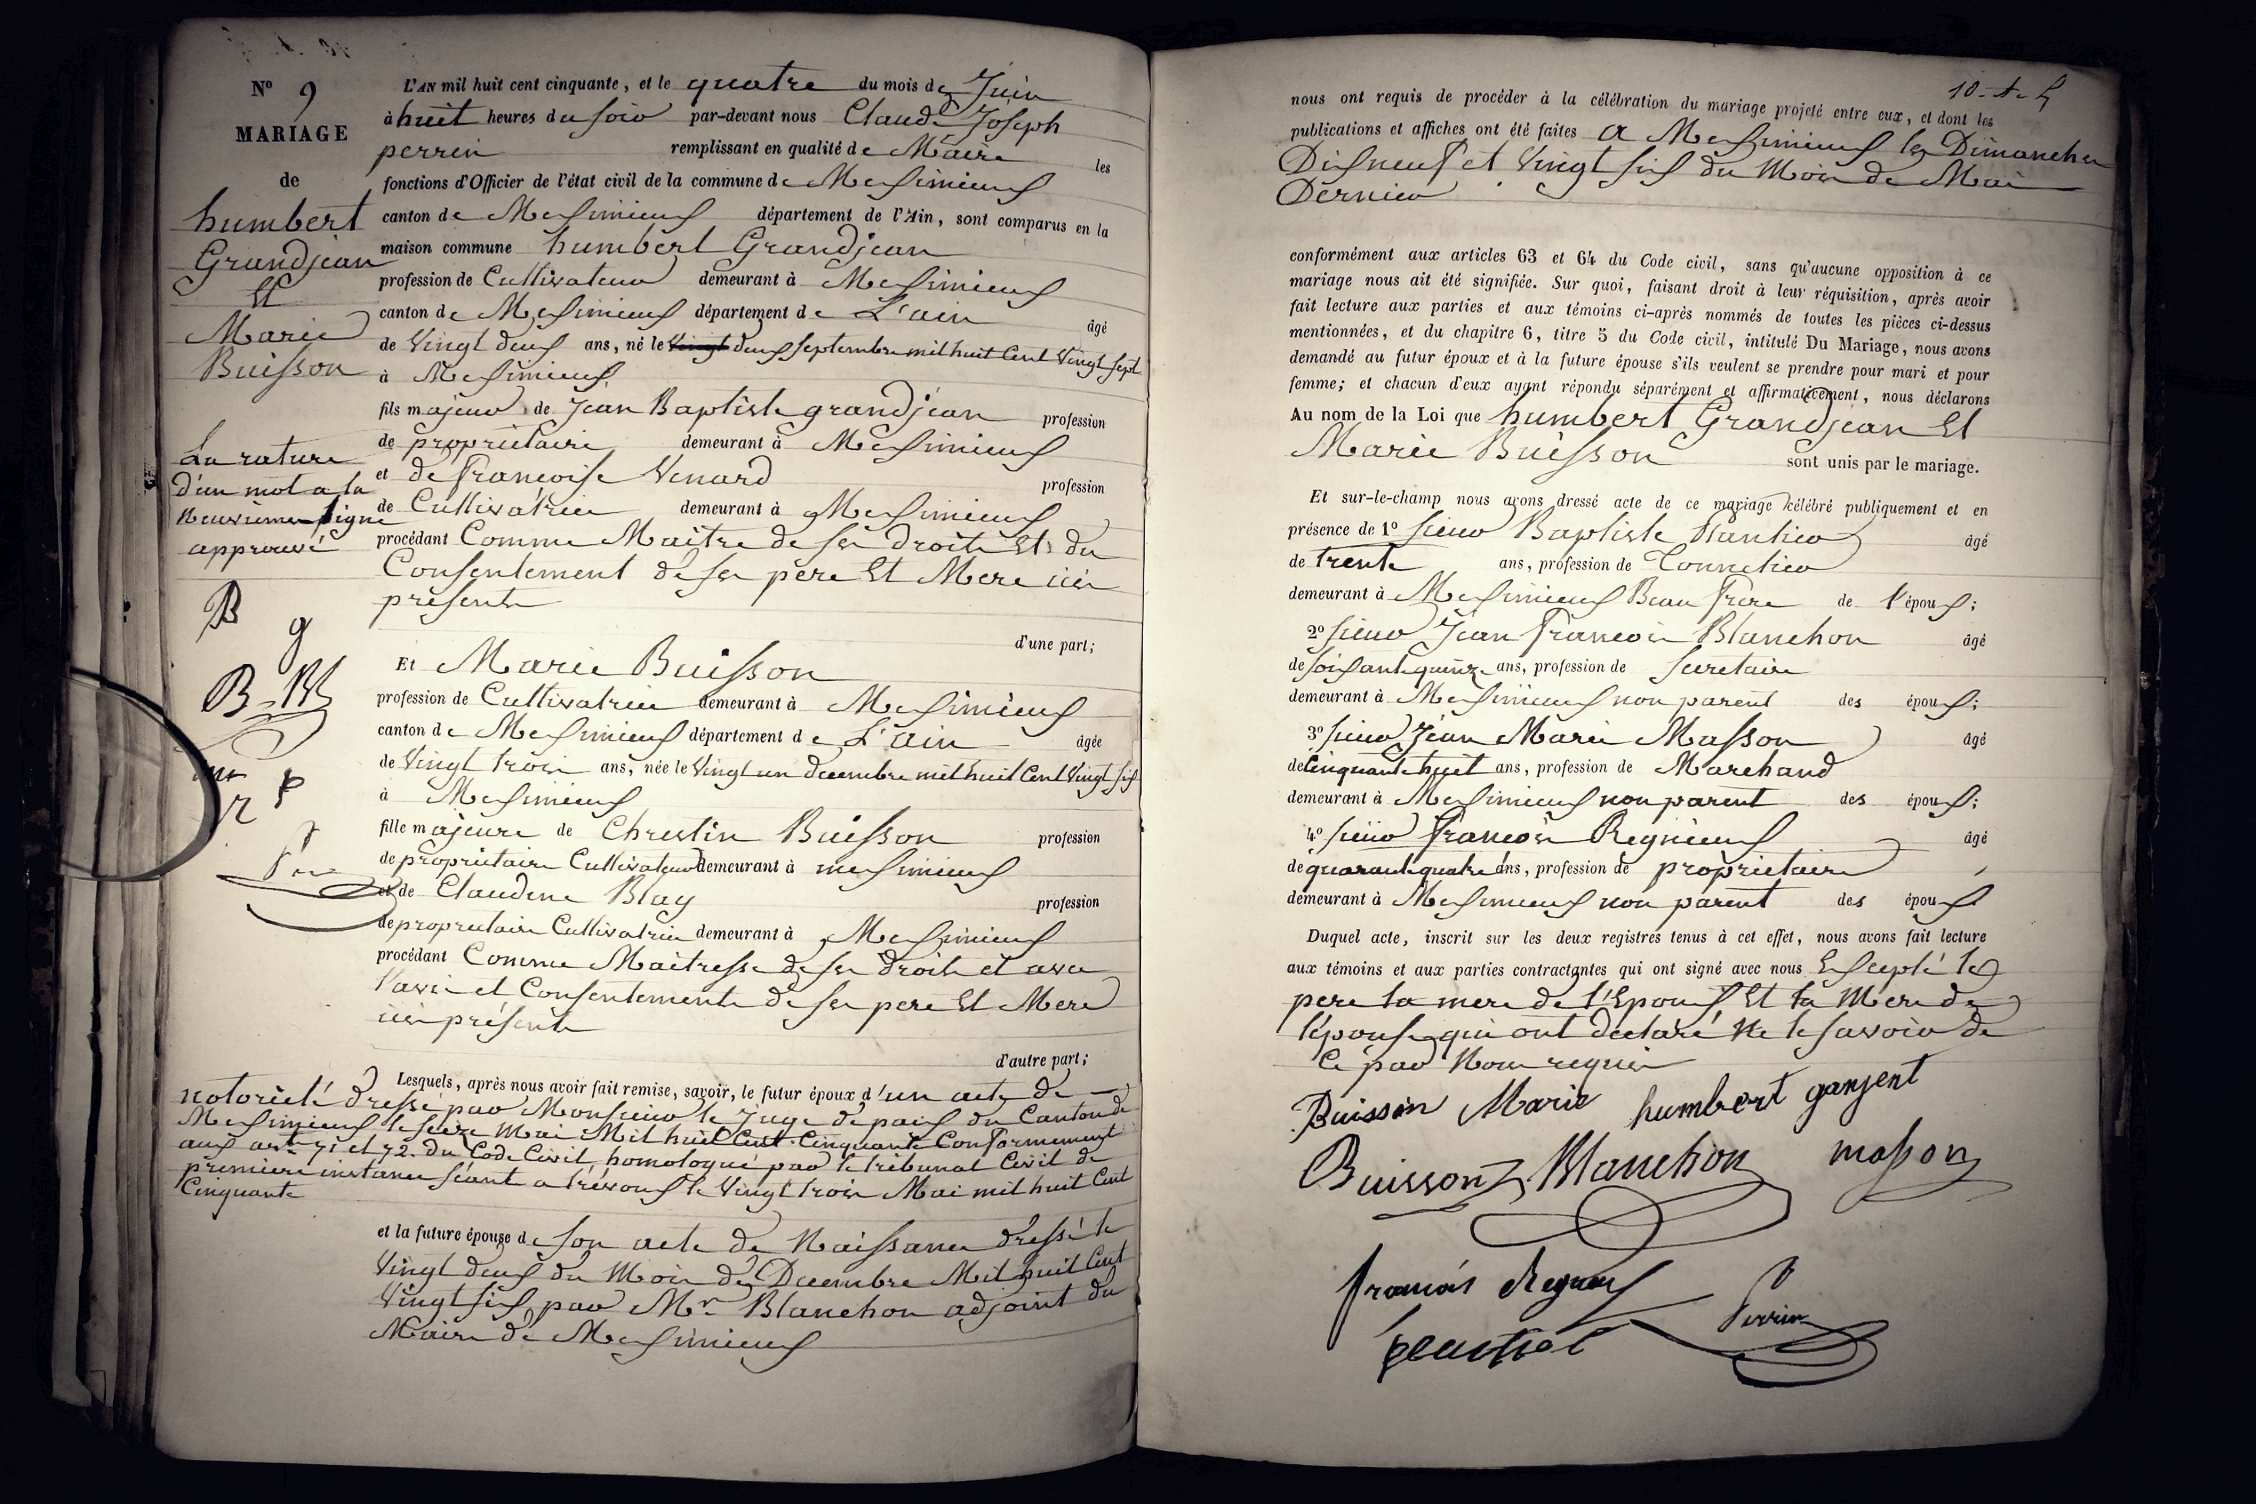 N° 9
MARIAGE
de
humbert
Grandjean
Et
Marie
Buisson
La rature
d'un mot a la
neuvieme ligne
approuvé
B g
B - Bl
r p
L'AN mil huit cent cinquante, et le quatre du mois de Juin
à huit heures du soir par-devant nous Claude Joseph
perrin remplissant en qualité de Maire les
fonctions d'Officier de l'état civil de la commune de Meximieux
canton de Meximieux département de l'Ain, sont comparus en la
maison commune humbert Grandjean
profession de Cultivateur demeurant à Meximieux
canton de Meximieux département de L'ain âgé
de Vingt deux ans, né le Vingt deux septembre mil huit Cent Vingt sept
à Meximieux
fils majeur de Jean Baptiste grandjean profession
de propriétaire demeurant à Meximieux
et de francoise Venard profession
de Cultivatrice demeurant à Meximieux
procédant Comme Maitre de ses droits Et du
Consentement de ses pere Et Mere ici
présents
d'une part;
Et Marie Buisson
profession de Cultivatrice demeurant à Meximieux
canton de Meximieux département de L'Ain âgée
de Vingt trois ans, née le Vingt un decembre mil huit Cent Vingt six
à Meximieux
fille majeure de Christin Buisson profession
de propriétaire Cultivateur demeurant à meximieux
et de Claudine Blay profession
de propriétaire Cultivatrice demeurant à Meximieux
procédant Comme Maitresse de ses droits et avec
l'avis et Consentement de ses pere Et Mere
ici présents
d'autre part;
Lesquels, après nous avoir fait remise, savoir, le futur époux d'un acte de
notoriété dressé par Monsieur le Juge de paix du Canton de
Meximieux le seize Mai Mil huit Cent Cinquante Conformement
aux arts 71 et 72 du Code Civil homologué par le tribunal Civil de
premiere instance séant a trévoux le Vingt trois Mai mil huit Cent
Cinquante
et la future épouse de son acte de Naissance dressé le
Vingt deux du Mois de Decembre Mil huit Cent
Vingt six par Mr Blanchon adjoint du
Maire de Meximieux
10 -
nous ont requis de procéder à la célébration du mariage projeté entre eux, et dont les
publications et affiches ont été faites a Meximieux les Dimanches
Dix neuf et Vingt six du Mois de Mai
Dernier
conformément aux articles 63 et 64 du Code civil, sans qu'aucune opposition à ce
mariage nous ait été signifiée. Sur quoi, faisant droit à leur réquisition, après avoir
fait lecture aux parties et aux témoins ci-après nommés de toutes les pièces ci-dessus
mentionnées, et du chapitre 6, titre 5 du Code civil, intitulé Du Mariage, nous avons
demandé au futur époux et à la future épouse s'ils veulent se prendre pour mari et pour
femme; et chacun d'eux ayant répondu séparément et affirmativement, nous déclarons
Au nom de la Loi que humbert Grandjean Et
Marie Buisson sont unis par le mariage.
Et sur-le-champ nous avons dressé acte de ce mariage célébré publiquement et en
présence de 1° sieur Baptiste âgé
de trente ans, profession de Tonnelier
demeurant à Meximieux Beau frere de l'époux;
2° sieur Jean francois Blanchon âgé
de soixante quinze ans, profession de Secretaire
demeurant à Meximieux non parent des époux;
3° sieur Jean Marie Masson âgé
de Cinquante huit ans, profession de Marchand
demeurant à Meximieux non parent des époux;
4° sieur francois Regnieux âgé
de quarante quatre ans, profession de propriétaire
demeurant à Meximieux non parent des époux
Duquel acte, inscrit sur les deux registres tenus à cet effet, nous avons fait lecture
aux témoins et aux parties contractantes qui ont signé avec nous Excepté le
pere la mere de l'Epoux Et la Mere de
l'épouse qui ont declaré Ne le savoir de
Ce par Nous requis
Buisson Marie humbert ganjent
Buisson Blanchon masson
francois
Perrin